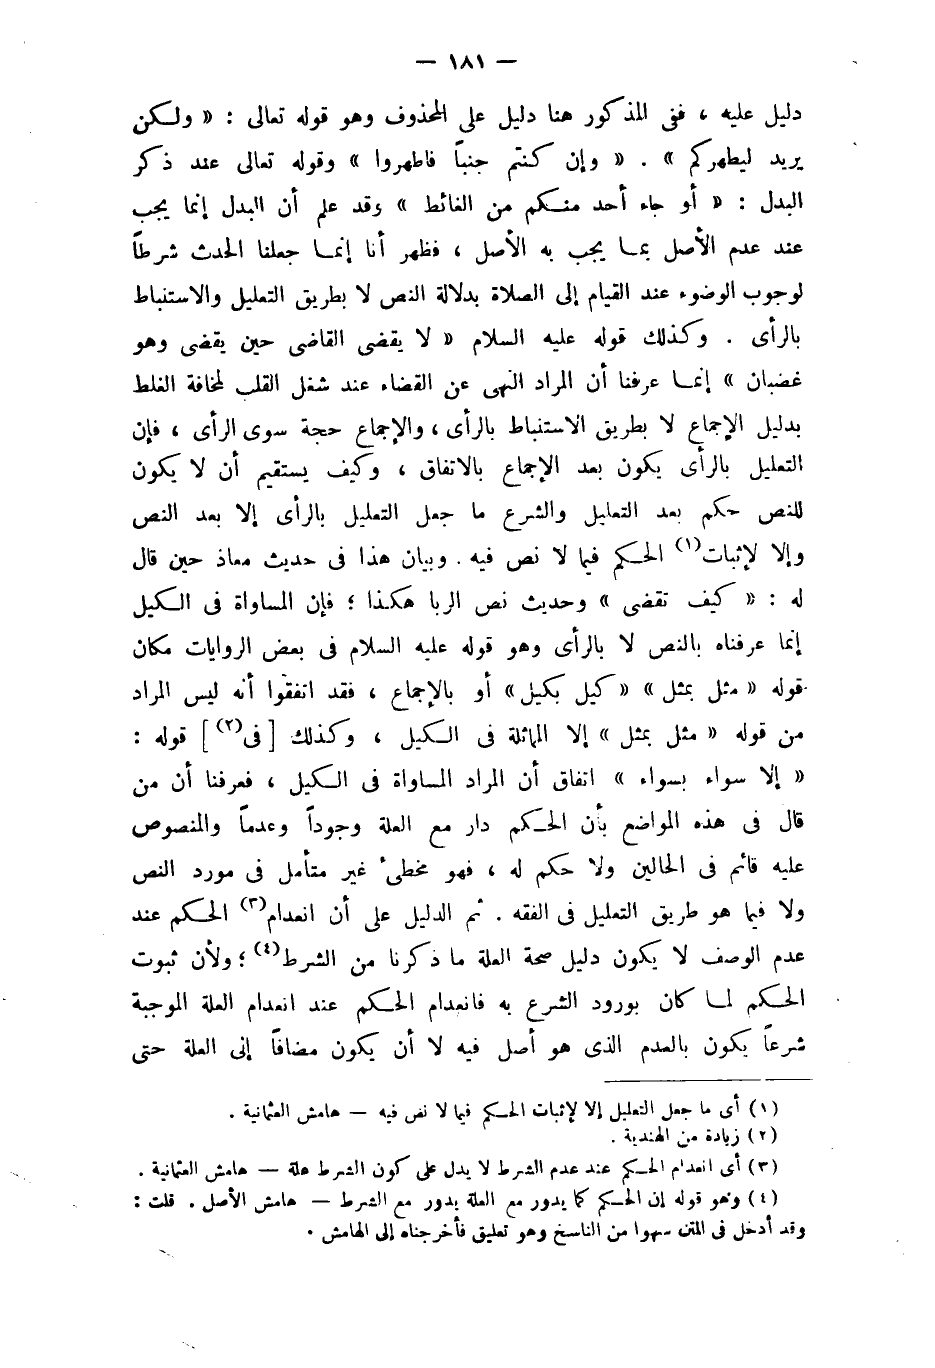 — ١٨١ —
دليل عليه ، ففى المذكور هنا دليل على المحذوف وهو قوله تعالى : « ولكن
يريد ليطهركم » . « وإن كنتم جنباً فاطهروا » وقوله تعالى عند ذكر
البدل : « أو جاء أحد منكم من الغائط » وقد علم أن البدل إنما يجب
عند عدم الأصل بما يجب به الأصل ، فظهر أنا إنما جعلنا الحدث شرطاً
لوجوب الوضوء عند القيام إلى الصلاة بدلالة النص لا بطريق التعليل والاستنباط
بالرأى . وكذلك قوله عليه السلام « لا يقضى القاضى حين يقضى وهو
غضبان » إنما عرفنا أن المراد النهى عن القضاء عند شغل القلب لمخافة الغلط
بدليل الإجماع لا بطريق الاستنباط بالرأى ، والإجماع حجة سوى الرأى ، فإن
التعليل بالرأى يكون بعد الإجماع بالاتفاق ، وكيف يستقيم أن لا يكون
للنص حكم بعد التعليل والشرع ما جعل التعليل بالرأى إلا بعد النص
وإلا لإثبات(١) الحكم فيما لا نص فيه . وبيان هذا فى حديث معاذ حين قال
له : « كيف تقضى » وحديث نص الربا هكذا ؛ فإن المساواة فى الكيل
إنما عرفناه بالنص لا بالرأى وهو قوله عليه السلام فى بعض الروايات مكان
قوله « مثل بمثل » « كيل بكيل » أو بالإجماع ، فقد اتفقوا أنه ليس المراد
من قوله « مثل بمثل » إلا المماثلة فى الكيل ، وكذلك [ فى(٢) ] قوله :
« إلا سواء بسواء » اتفاق أن المراد المساواة فى الكيل ، فعرفنا أن من
قال فى هذه المواضع بأن الحكم دار مع العلة وجوداً وعدماً والمنصوص
عليه قائم فى الحالين ولا حكم له ، فهو مخطئ غير متأمل فى مورد النص
ولا فيما هو طريق التعليل فى الفقه . ثم الدليل على أن انعدام(٣) الحكم عند
عدم الوصف لا يكون دليل صحة العلة ما ذكرنا من الشرط(٤) ؛ ولأن ثبوت
الحكم لما كان بورود الشرع به فانعدام الحكم عند انعدام العلة الموجبة
شرعاً يكون بالعدم الذى هو أصل فيه لا أن يكون مضافاً إلى العلة حتى
(١) أى ما جعل التعليل إلا لإثبات الحكم فيما لا نص فيه — هامش العثمانية .
(٢) زيادة من الهندية .
(٣) أى انعدام الحكم عند عدم الشرط لا يدل على كون الشرط علة — هامش العثمانية .
(٤) وهو قوله إن الحكم كما يدور مع العلة يدور مع الشرط — هامش الأصل . قلت :
وقد أدخل فى المتن سهوا من الناسخ وهو تعليق فأخرجناه إلى الهامش .